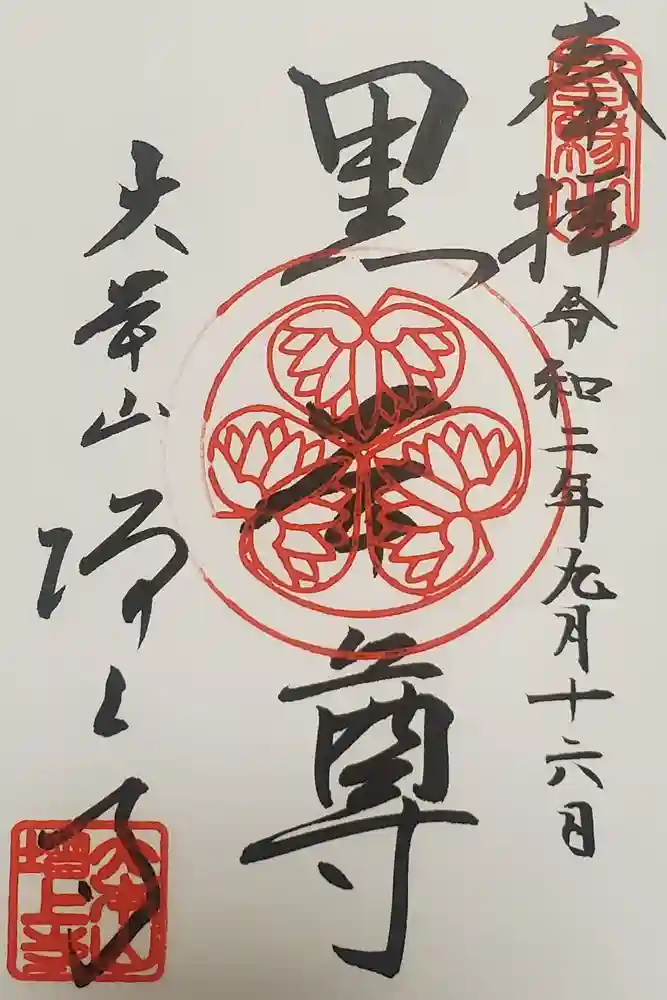 奉拝
令和二年九月十六日
黒本尊
大本山増上寺
三縁山
大本山増上寺